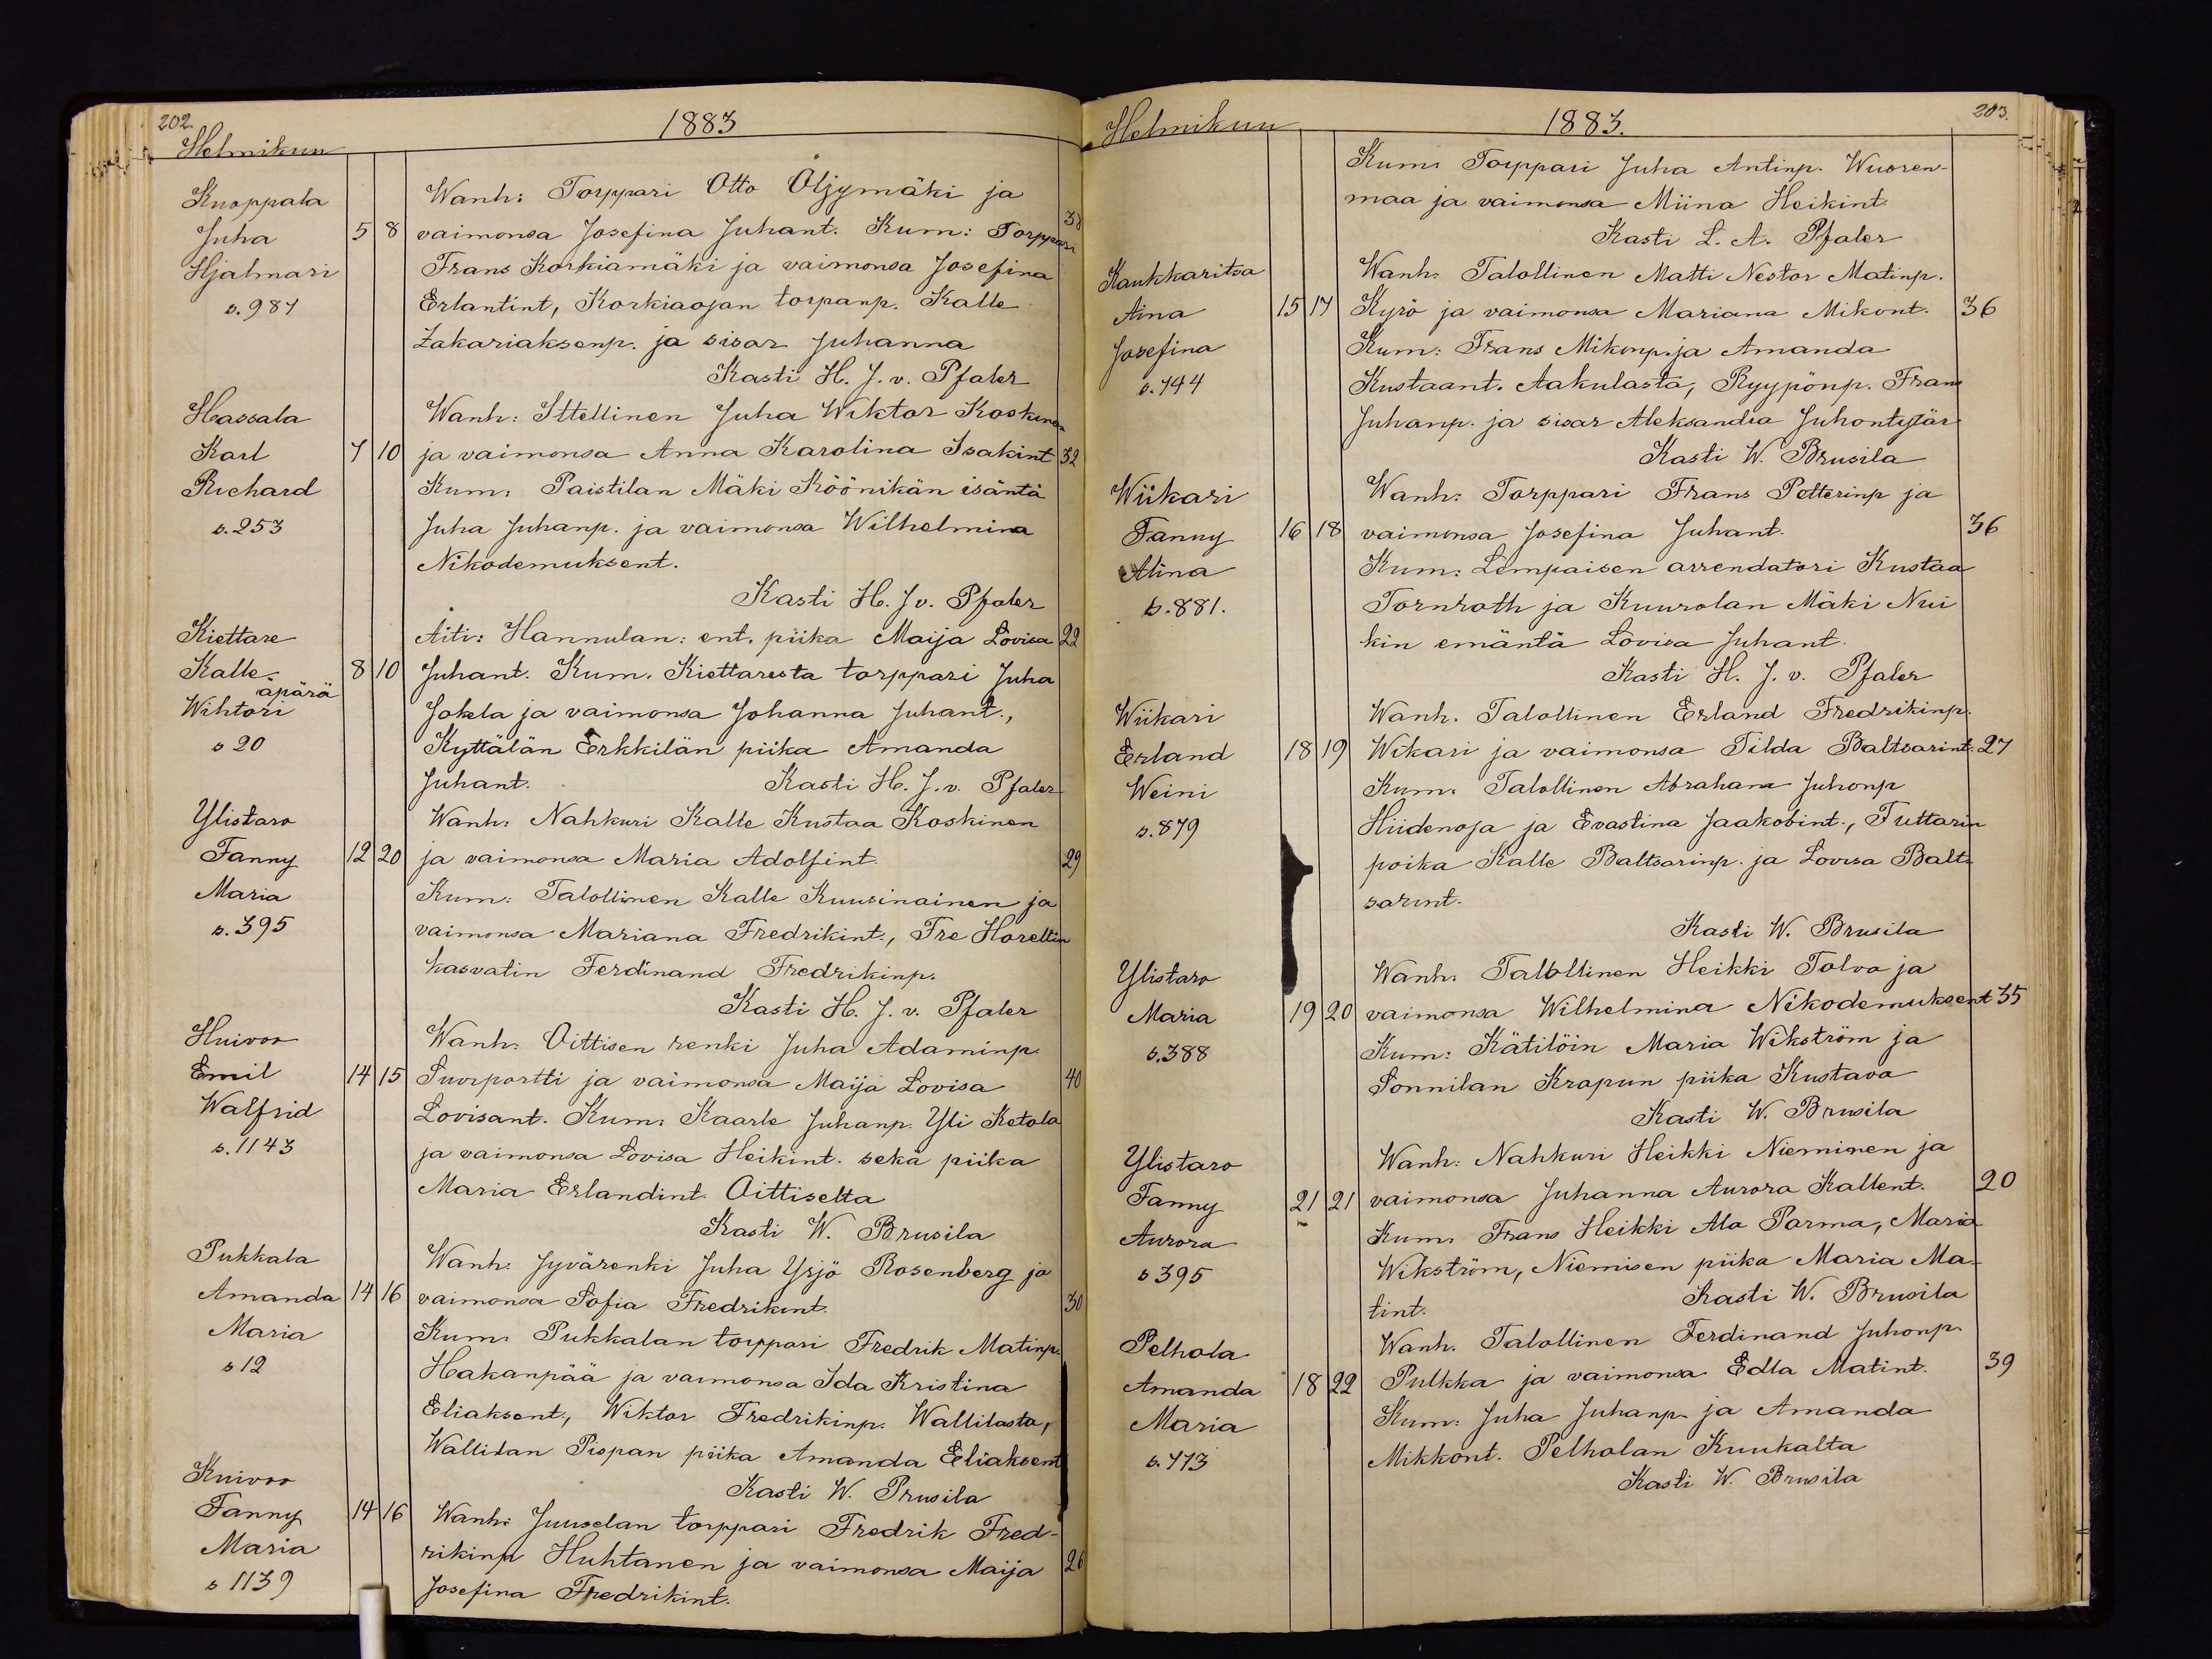 202.
1883
Helmikuu
Knoppala
Juha 5 8
Hjalmari
s. 987
Wanh: Torppari Otto Öljymäki ja
vaimonsa Josefina Juhant. Kum: Torppari 38
Frans Korkiamäki ja vaimonsa Josefina
Erlantint, Korkiaojan torpanp. Kalle
Zakariaksenp. ja sisar Juhanna
Kasti H. J. v. Pfaler
Hassala
Karl 7 10
Richard
s. 253
Wanh: Ittellinen Juha Wiktor Koskinen
ja vaimonsa Anna Karolina Isakint 32
Kum: Paistilan Mäki Köönikän isäntä
Juha Juhanp. ja vaimonsa Wilhelmina
Nikodemuksent.
Kasti H. J v. Pfaler
Kiettare
Kalle 8 10
äpärä
Wihtori
s 20
Äiti: Hannulan: ent. piika Maija Lovisa 22
Juhant. Kum. Kiettaresta torppari Juha
Jokela ja vaimonsa Johanna Juhant.,
Kyttälän Erkkilän piika Amanda
Juhant. Kasti H. J. v. Pfaler
Ylistaro
Fanny 12 20
Maria
s. 395
Wanh: Nahkuri Kalle Kustaa Koskinen
ja vaimonsa Maria Adolfint. 29
Kum: Talollinen Kalle Kuusinainen ja
vaimonsa Mariana Fredrikint., Fre Horellin
kasvatin Ferdinand Fredrikinp.
Kasti H. J. v. Pfaler
Huivoo
Emil 14 15
Walfrid
s. 1143
Wanh: Oittisen renki Juha Adaminp.
Suorportti ja vaimonsa Maija Lovisa 40
Lovisant. Kum: Kaarle Juhanp. Yli Ketola
ja vaimonsa Lovisa Heikint. sekä piika
Maria Erlandint. Oittiselta
Kasti W. Brusila
Pukkala
Amanda 14 16
Maria
s 12
Wanh: Jyvärenki Juha Yrjö Rosenberg ja
vaimonsa Sofia Fredrikint. 30
Kum: Pukkalan torppari Fredrik Matinp.
Hakanpää ja vaimonsa Ida Kristina
Eliaksent., Wiktor Fredrikinp. Wallilasta,
Wallilan Pispan piika Amanda Eliaksent
Kasti W. Prusila
Kuivoo
Fanny 14 16
Maria
s 1139
Wanh: Juuselan torppari Fredrik Fred-
rikinp Huhtanen ja vaimonsa Maija 26
Josefina Fredrikint.
Helmikuu
1883.
203.
Kum: Torppari Juha Antinp. Wuoren-
maa ja vaimonsa Miina Heikint.
Kasti L. A. Pfaler
Kaukkaritsa
Aina 15 17
Josefina
s. 744
Wanh: Talollinen Matti Nestor Matinp.
Kyrö ja vaimonsa Mariana Mikont. 36
Kum: Frans Mikonp. ja Amanda
Kustaant. Aakulasta, Ryypönp. Frans
Juhanp. ja sisar Aleksandra Juhontytär
Kasti W. Brusila
Wiikari
Fanny 16 18
Alina
s. 881.
Wanh: Torppari Frans Petterinp ja
vaimonsa Josefina Juhant. 36
Kum: Lempaisen arrendatori Kustaa
Tornroth ja Kuurolan Mäki Nui
kin emäntä Lovisa Juhant.
Kasti H. J. v. Pfaler
Wiikari
Erland 18 19
Weini
s. 879
Wanh. Talollinen Erland Fredrikinp.
Wikari ja vaimonsa Tilda Baltsarint. 27
Kum: Talollinen Abraham Juhonp
Hiidenoja ja Evastina Jaakobint., Tuttarin
poika Kalle Baltsarinp. ja Lovisa Balt-
sarint.
Kasti W. Brusila
Ylistaro
Maria 19 20
s. 388
Wanh: Talollinen Heikki Tolvo ja
vaimonsa Wilhelmina Nikodemuksent 35
Kum: Kätilöin Maria Wikström ja
Sonnilan Krapun piika Kustava
Kasti W. Brusila
Ylistaro
Fanny 21 21
Aurora
s 395
Wanh: Nahkuri Heikki Nieminen ja
vaimonsa Juhanna Aurora Kallent. 20
Kum: Frans Heikki Ala Parma, Maria
Wikström, Niemisen piika Maria Ma-
tint. Kasti W. Brusila
Pelhola
Amanda 18 22
Maria
s. 773
Wanh. Talollinen Ferdinand Juhonp.
Pulkka ja vaimonsa Edla Matint. 39
Kum: Juha Juhanp. ja Amanda
Mikkont. Pelholan Kuukalta
Kasti W. Brusila